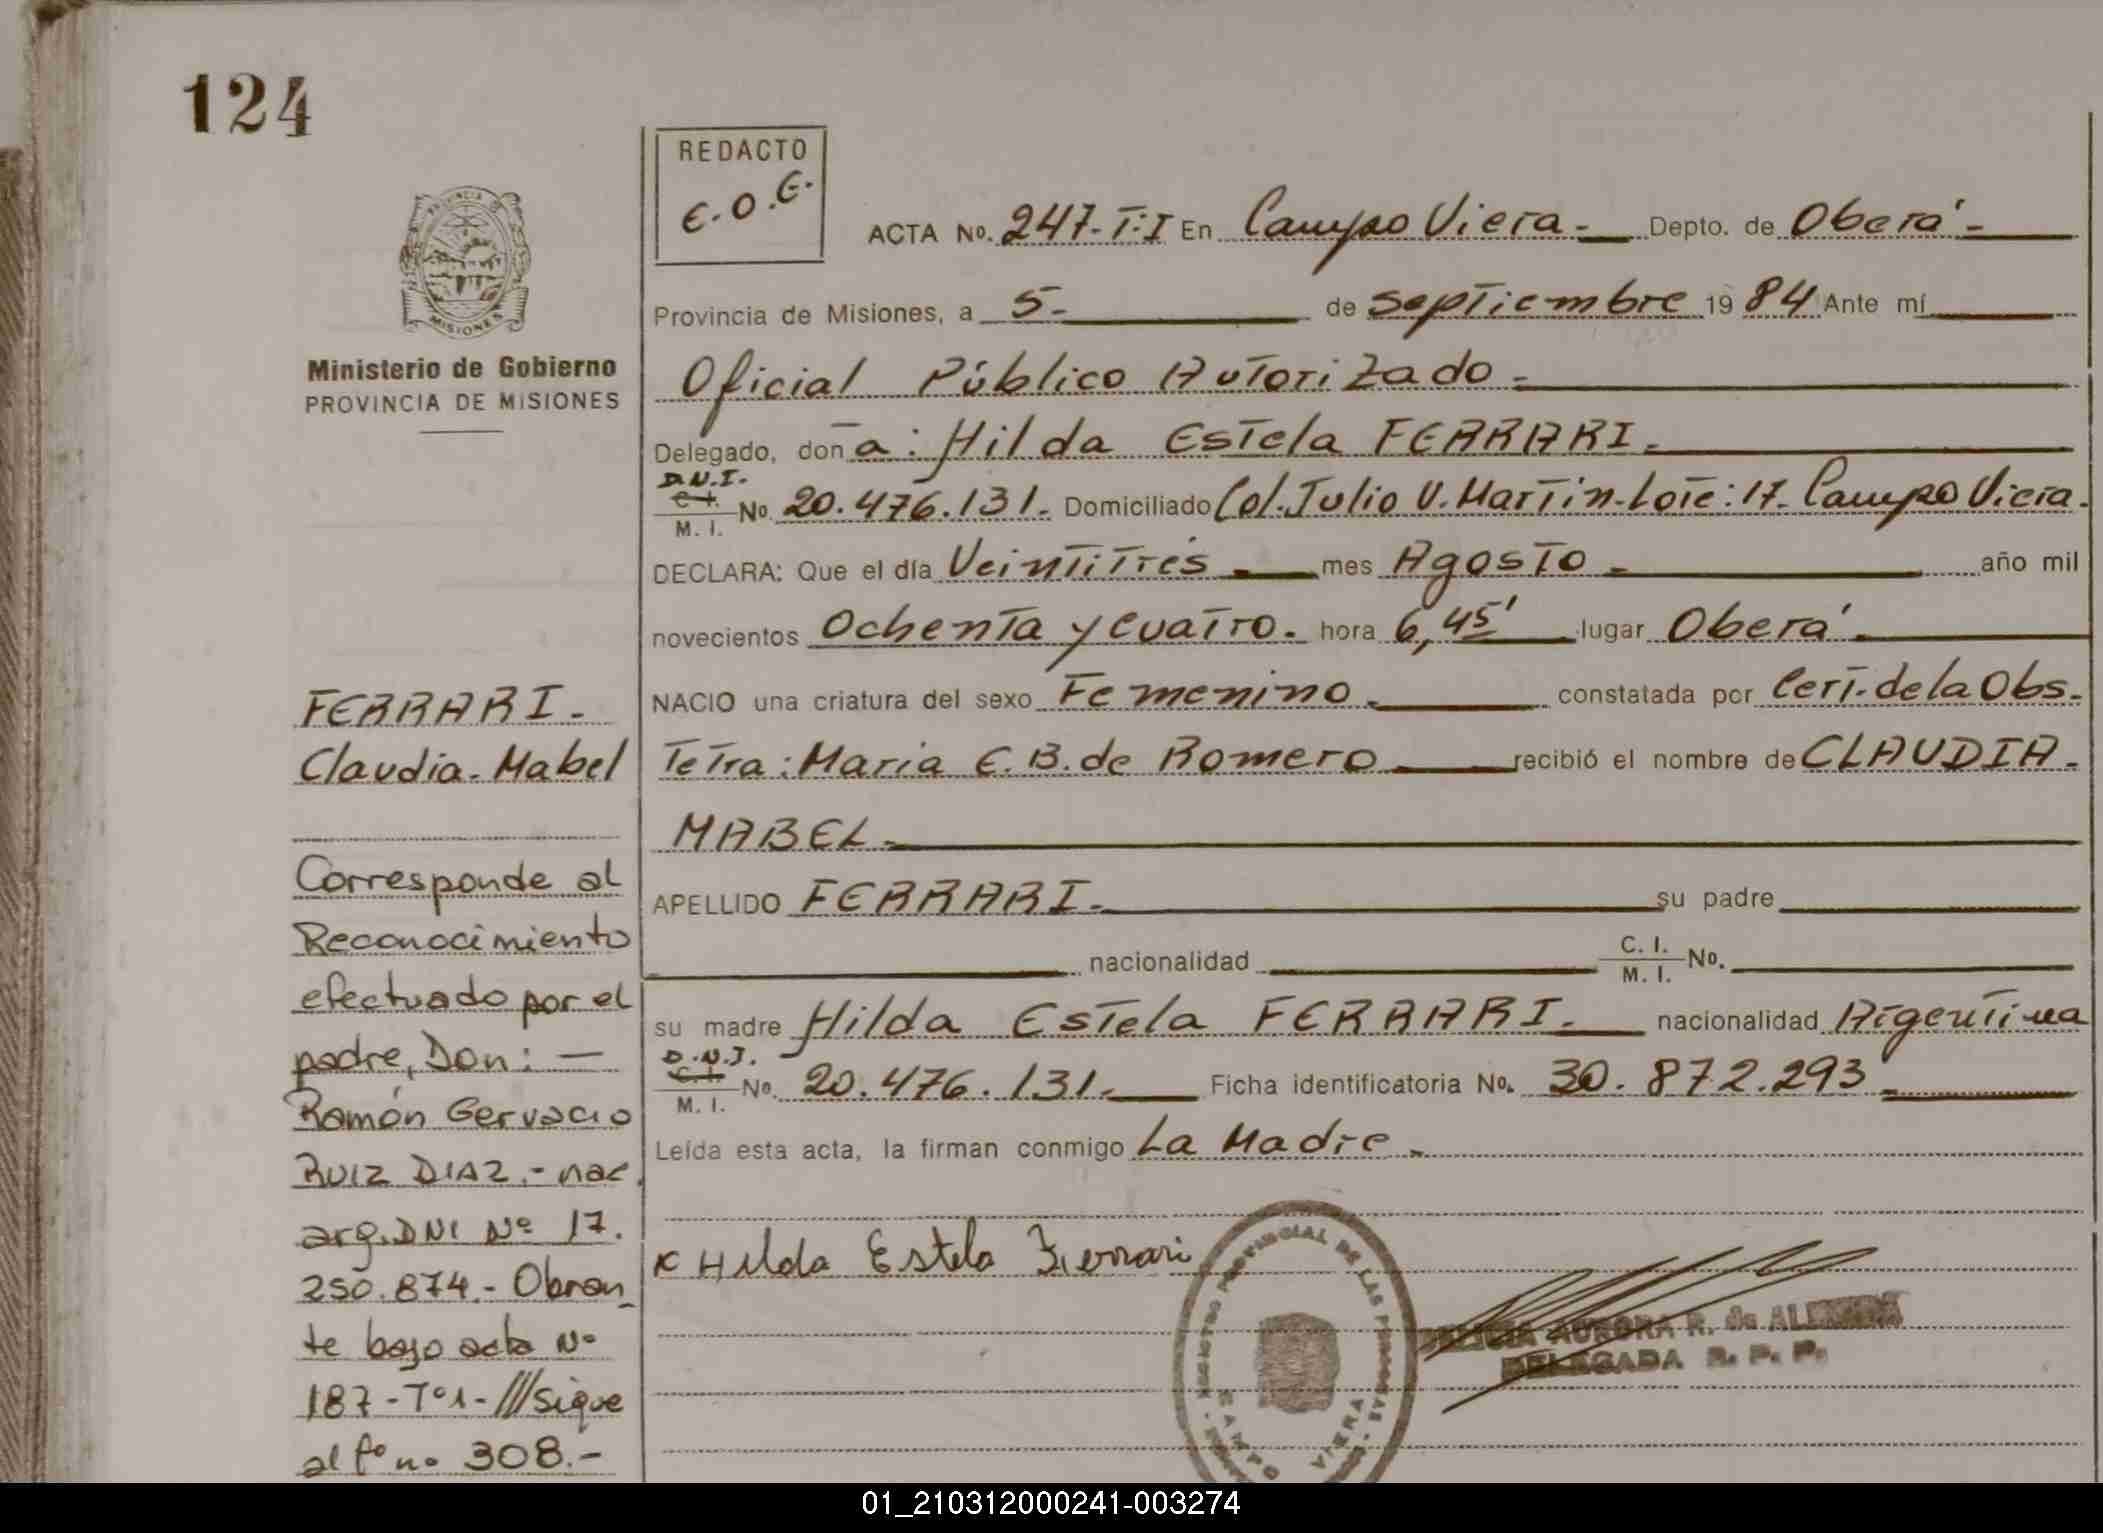 124
REDACTO
E.O.G.
ACTA No. 247-T:I En Campo Viera.- Depto. de Oberá.-
Provincia de Misiones, a 5- de septiembre 19 84 Ante mí
Oficial Público Autorizado.-
Delegado, don a: Hilda Estela FERRARI.-
D.N.I.
C. I.
M. I. No. 20.476.131.- Domiciliado Col. Julio U. Martin-Lote: 17- Campo Viera.
DECLARA: Que el día Veintitrés.- mes Agosto.- año mil
novecientos Ochenta y Cuatro.- hora 6,45' lugar Oberá.-
NACIO una criatura del sexo Femenino.- constatada por Cert. de la Obs-
Tetra: Maria E. B. de Romero recibió el nombre de CLAUDIA.-
MABEL.-
APELLIDO FERRARI.- su padre
nacionalidad C. I.
M. I. No.
su madre Hilda Estela FERRARI.- nacionalidad Argentina
D.N.I.
C. I.
M. I. No. 20.476.131.- Ficha identificatoria No. 30.872.293.-
Leída esta acta, la firman conmigo La Madre.-
x Hilda Estela Ferrari
REGISTRO PROVINCIAL DE LAS PERSONAS
CAMPO VIERA
AURORA R. de
DELEGADA R. P. P.
PROVINCIA DE
MISIONES
Ministerio de Gobierno
PROVINCIA DE MISIONES
FERRARI.-
Claudia. Mabel
Corresponde al
Reconocimiento
efectuado por el
padre, Don: —
Ramón Gervacio
RUIZ DIAZ.- nac.
arg. DNI Nº 17.
250.874.- Obran_
te bajo acta Nº
187-Tº1-///sigue
al fº nº 308.-
01_210312000241-003274